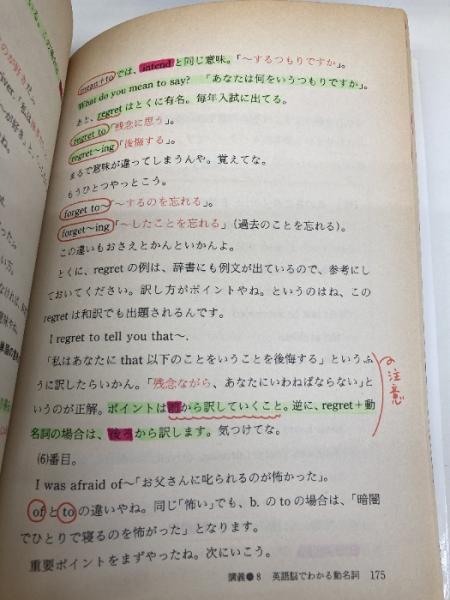 mean+toでは、intendと同じ意味。「〜するつもりですか」。
What do you mean to say? 「あなたは何をいうつもりですか」。
あと、regretはとくに有名。毎年入試に出てる。
regret to「残念に思う」。
regret〜ing「後悔する」。
まるで意味が違ってしまうんや。覚えてな。
もうひとつやっとこう。
forget to〜「〜するのを忘れる」。
forget〜ing「〜したことを忘れる」（過去のことを忘れる）。
この違いもおさえとかんといかんよ。
とくに、regretの例は、辞書にも例文が出ているので、参考にし
ておいてください。訳し方がポイントやね。というのはね、この
regretは和訳でも出題されるんです。
I regret to tell you that〜.
「私はあなたにthat以下のことをいうことを後悔する」というふ
うに訳したらいかん。「残念ながら、あなたにいわねばならない」と
いうのが正解。ポイントは前から訳していくこと。逆に、regret+動
名詞の場合は、後ろから訳します。気つけてな。
の注意
(6)番目。
I was afraid of〜「お父さんに叱られるのが怖かった」。
ofとtoの違いやね。同じ「怖い」でも、b. のtoの場合は、「暗闇
でひとりで寝るのを怖がった」となります。
重要ポイントをまずやったね。次にいこう。
講義●8 英語脳でわかる動名詞 175